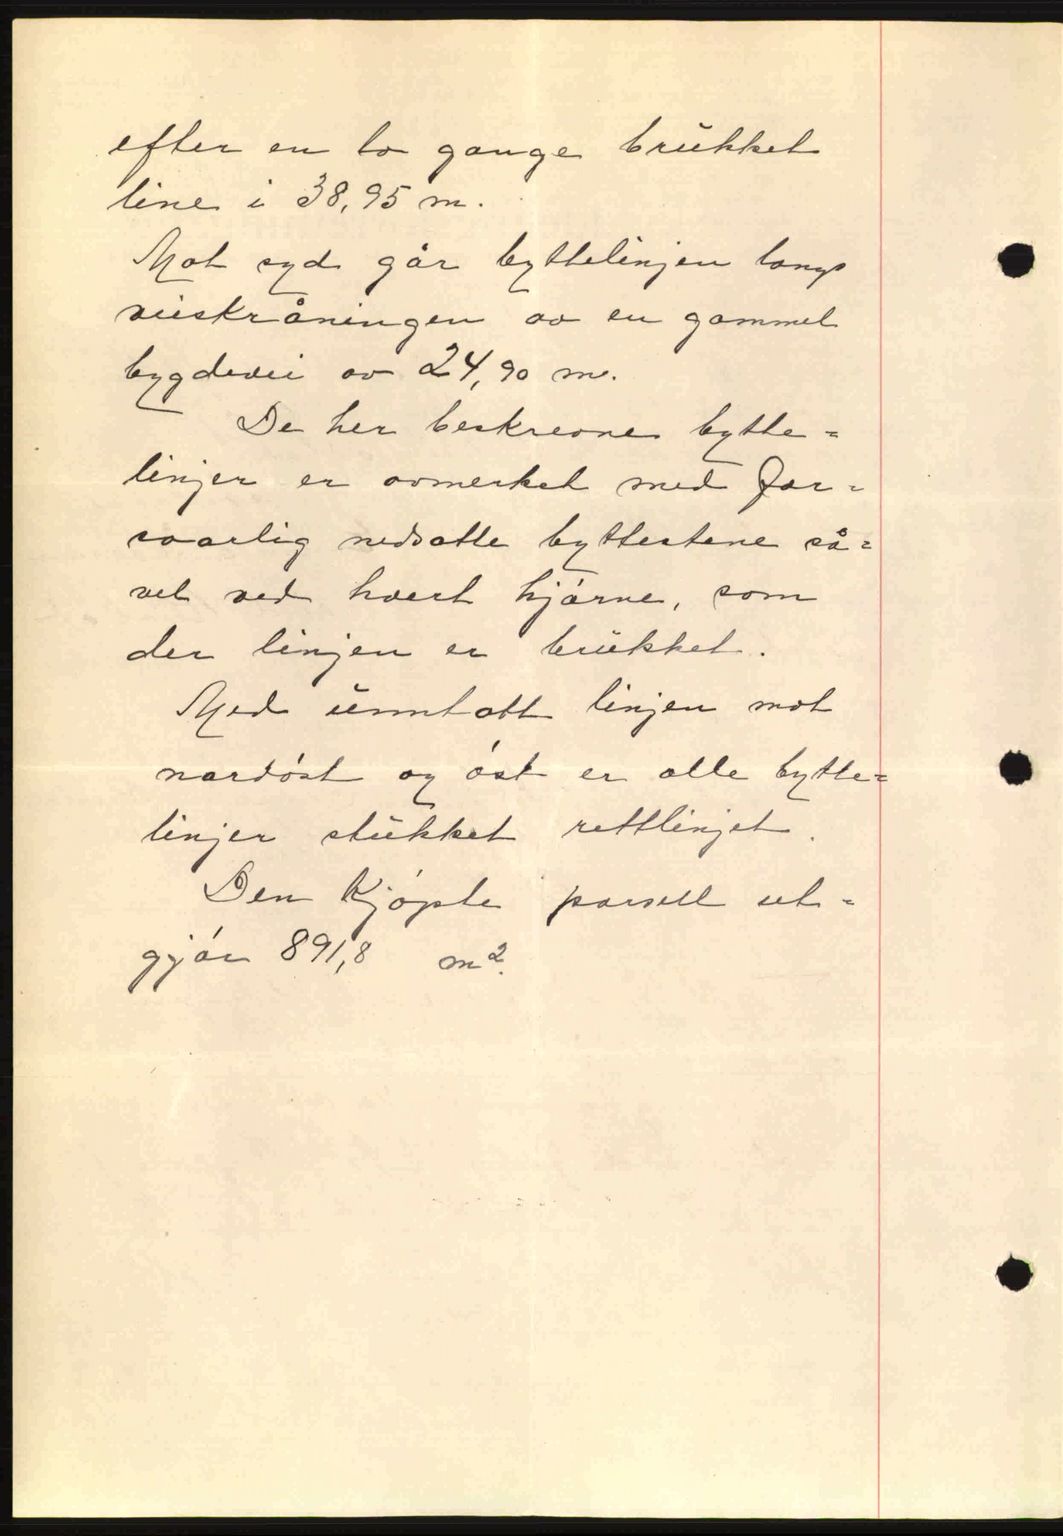 efter en to gange brukket
line i 38,95 m.
Mot syd går byttelinjen langs
veiskråningen av en gammel
bygdevei av 24,90 m.
De her beskrevne bytte=
linjer er avmerket med for=
svarlig nedsatte byttestene så=
vel ved hvert hjórne, som
der linjen er brukket.
Med unntatt linjen mot
nordóst og óst er alle bytte=
linjer stukket rettlinjet.
Den kjópte parsell ut=
gjór 891,8 m².